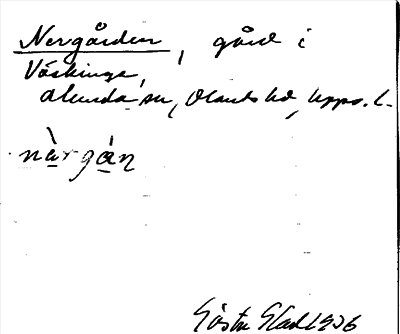 Nergården, gård i
Väskinge,
Alunda sn, Olands hd, Upps. l.
nàrgáṇ
Gösta Edlad 1936